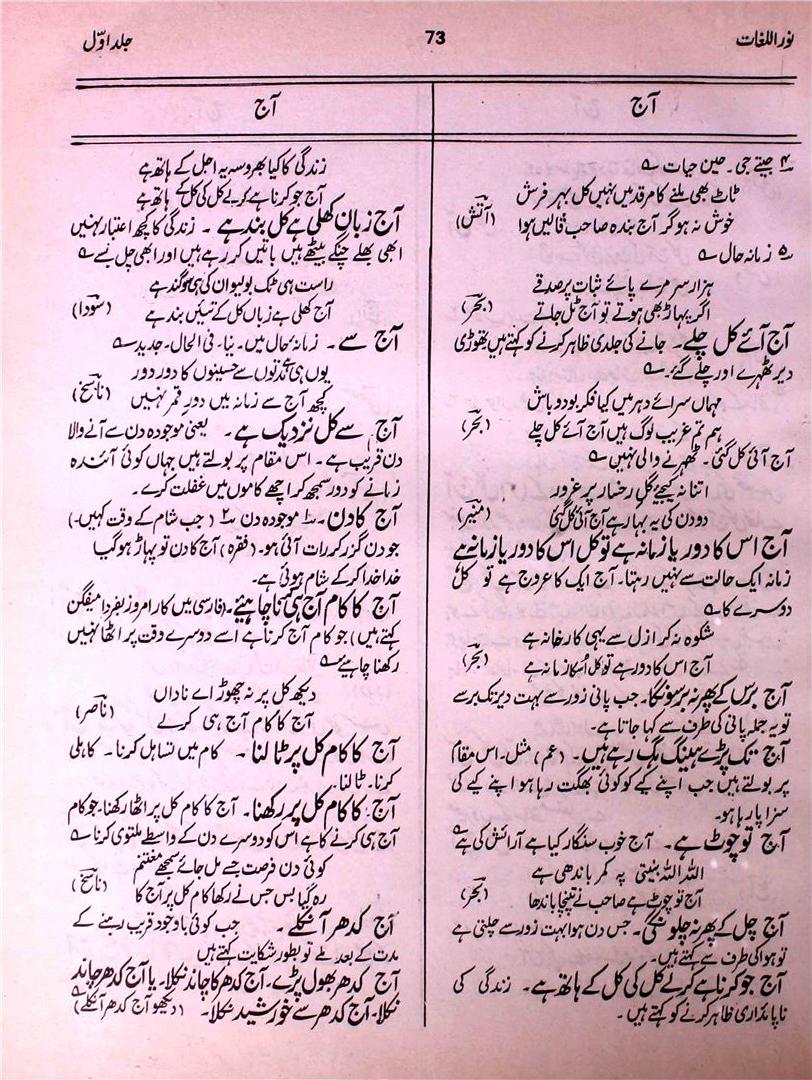 نور اللغات
73
جلد اوّل
آج
۴ جیتے جی۔ حین حیات ؎
ٹاٹ بھی ملنے کا مرقد میں نہیں کل بہر فرش
خوش نہ ہو گر آج بندہ صاحب قالیں ہوا (آتش)
۵ زمانہ حال ؎
ہزار سر مرے پائے ثبات پر صدقے
اگر پہاڑ بھی ہوتے تو آج ٹل جاتے (بحر)
آج آئے کل چلے۔ جانے کی جلدی ظاہر کرنے کو کہتے ہیں تھوڑی
دیر ٹھہرے اور چلے گئے۔ ؎
مہماں سرائے دہر میں کیا فکر بود و باش
ہم تم غریب لوگ ہیں آج آئے کل چلے (بحر)
آج آئی کل گئی۔ ٹھہرنے والی نہیں ؎
اتنا نہ کیجیے گل رخسار پر غرور
دو دن کی یہ بہار ہے آج آئی کل گئی (منیر)
آج اس کا دور یا زمانہ ہے تو کل اس کا دور یا زمانہ ہے
زمانہ ایک حالت سے نہیں رہتا۔ آج ایک کا عروج ہے تو کل
دوسرے کا ؎
شکوہ نہ کر ازل سے یہی کارخانہ ہے
آج اس کا دور ہے تو کل اُسکا زمانہ ہے (بحر)
آج برس کے پھر نہ برسونگا۔ جب پانی زور سے بہت دیر تک برسے
تو یہ جملہ پانی کی طرف سے کہا جاتا ہے۔
آج تک پڑے ہینگ ہگ رہے ہیں۔ (عم) مثل۔ اس مقام
پر بولتے ہیں جب اپنے کیے کو کوئی بھگت رہا ہو اپنے کیے کی
سزا پا رہا ہو۔
آج تو چوٹ ہے۔ آج خوب سنگار کیا ہے آرائش کی ہے ؎
اللہ اللہ بنیتی پہ کمر باندھی ہے
آج تو چوٹ ہے صاحب نے تپنچا باندھا (بحر)
آج چل کے پھر نہ چلونگی۔ جس دن ہوا بہت زور سے چلتی ہے
تو ہوا کی طرف سے کہتے ہیں۔
آج جو کرنا ہے کر لے کل کی کل کے ہاتھ ہے۔ زندگی کی
ناپائداری ظاہر کرنے کو کہتے ہیں۔
آج
زندگی کا کیا بھروسہ یہ اجل کے ہاتھ ہے
آج جو کرنا ہے کر لے کل کی کل کے ہاتھ ہے
آج زبان کھلی ہے کل بند ہے۔ زندگی کا کچھ اعتبار نہیں
ابھی بھلے چنگے بیٹھے ہیں باتیں کر رہے ہیں اور ابھی چل بسے ؎
راست ہی ٹک بولیو ان کی ہی سوگند ہے
آج کھلی ہے زباں کل کے تئیں بند ہے (سودا)
آج سے۔ زمانہ حال میں۔ نیا۔ فی الحال۔ جدید ؎
یوں ہی مدتوں سے حسینوں کا دور دور
کچھ آج سے زمانہ میں دورِ قمر نہیں (ناسخ)
آج سے کل نزدیک ہے۔ یعنی موجودہ دن سے آنے والا
دن قریب ہے۔ اس مقام پر بولتے ہیں جہاں کوئی آئندہ
زمانے کو دور سمجھ کر اچھے کاموں میں غفلت کرے۔
آج کا دن۔ ۱ موجودہ دن ۲ (جب شام کے وقت کہیں۔)
جو دن گزر کر رات آئی ہو۔ (فقرہ) آج کا دن تو پہاڑ ہو گیا
خدا خدا کر کے شام ہوئی ہے۔
آج کا کام آج ہی کرنا چاہیئے۔ (فارسی میں کار امروز بفردا میفگن
کہتے ہیں) جو کام آج کرنا ہے اسے دوسرے وقت پر اٹھا نہیں
رکھنا چاہیئے ؎
دیکھ کل پر نہ چھوڑ اے ناداں
آج کا کام آج ہی کر لے (ناصر)
آج کا کام کل پر ٹالنا۔ کام میں تساہل کرنا۔ کاہلی
کرنا۔ ٹالنا۔
آج کا کام کل پر رکھنا۔ آج کا کام کل پر اٹھا رکھنا۔ جو کام
آج ہی کرنے کا ہے اُس کو دوسرے دن کے واسطے ملتوی کرنا ؎
کوئی دن فرصت جسے مل جائے سمجھے مغتنم
رہ گیا بس جس نے رکھا کام کل پر آج کا (ناسخ)
آج کدھر آ نکلے۔ جب کوئی باوجود قریب رہنے کے
مدت کے بعد ملے تو بطور شکایت کہتے ہیں
آج کدھر بھول پڑے۔ آج کدھر کا چاند نکلا۔ یا آج کدھر چاند
نکلا۔ آج کدھر سے خورشید نکلا۔ (دیکھو آج کدھر آ نکلے) ؎